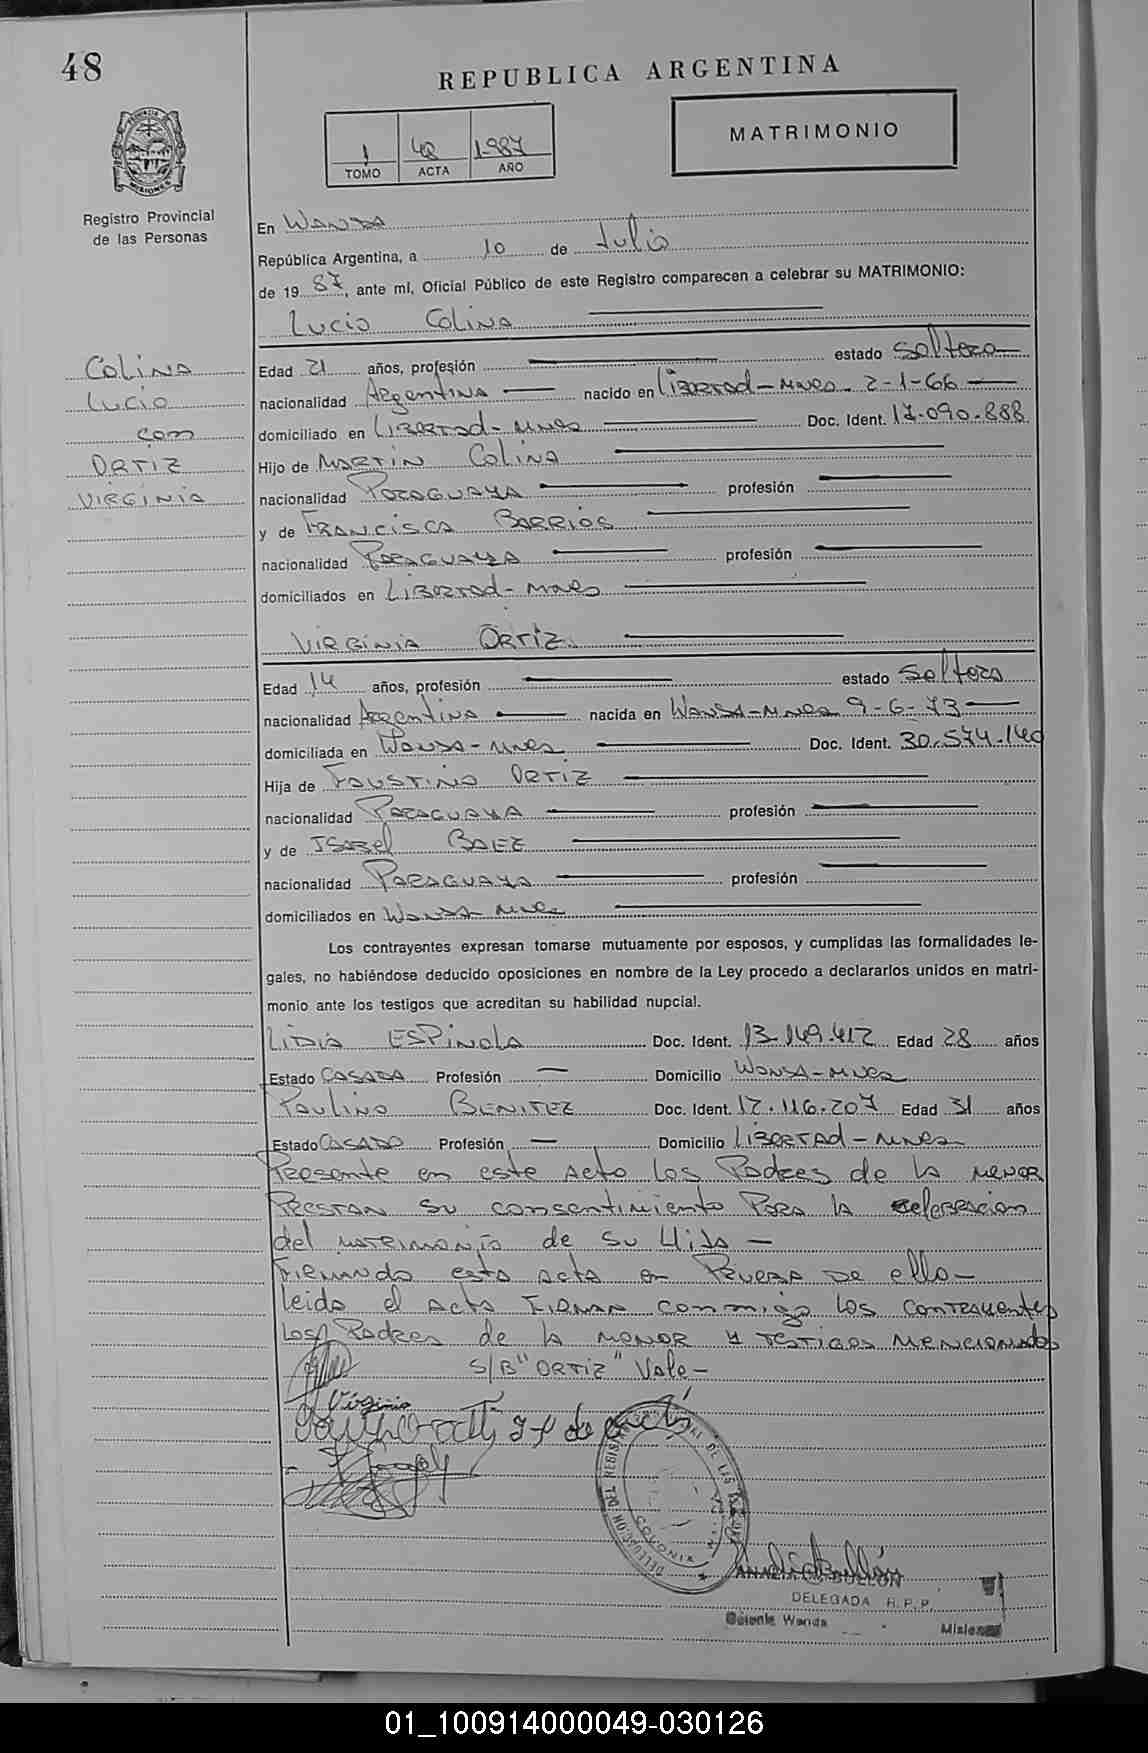 48
REPUBLICA ARGENTINA
1 48 1987
TOMO ACTA AÑO
MATRIMONIO
PROVINCIA DE MISIONES
Registro Provincial
de las Personas
En WANDA
República Argentina, a 10 de Julio
de 19 87, ante mí, Oficial Público de este Registro comparecen a celebrar su MATRIMONIO:
Lucio Colina
Colina
Lucio
con
ORTIZ
VIRGINIA
Edad 21 años, profesión estado Soltero
nacionalidad Argentina nacido en Libertad-Mnes- 2-1-66
domiciliado en Libertad-Mnes Doc. Ident. 17.090.888
Hijo de MARTIN Colina
nacionalidad PARAGUAYA profesión
y de FRANCISCA BARRIOS
nacionalidad PARAGUAYA profesión
domiciliados en Libertad-Mnes
VIRGINIA ORTIZ.
Edad 14 años, profesión estado Soltera
nacionalidad Argentina nacida en Wanda-Mnes 9-6-73
domiciliada en Wanda-Mnes Doc. Ident. 30.574.140
Hija de FAUSTINO ORTIZ
nacionalidad PARAGUAYA profesión
y de ISABEL BAEZ
nacionalidad PARAGUAYA profesión
domiciliados en Wanda-Mnes
Los contrayentes expresan tomarse mutuamente por esposos, y cumplidas las formalidades le-
gales, no habiéndose deducido oposiciones en nombre de la Ley procedo a declararlos unidos en matri-
monio ante los testigos que acreditan su habilidad nupcial.
LIDIA ESPINOLA Doc. Ident. 13.149.412 Edad 28 años
Estado CASADA Profesión — Domicilio Wanda-Mnes
Paulino BENITEZ Doc. Ident. 12.116.207 Edad 31 años
Estado CASADO Profesión — Domicilio Libertad-Mnes
Presente en este acto los Padres de la MENOR
Prestan su consentimiento Para la celebracion
del matrimonio de su Hija —
Firmando esta acta en Prueba de ello-
Leida el acta Firman conmigo los contrayentes
Los Padres de la MENOR y testigos mencionados
S/B "ORTIZ" Vale-
Virginia
DELEGADA R.P.P.
Wanda
Misiones
01_100914000049-030126